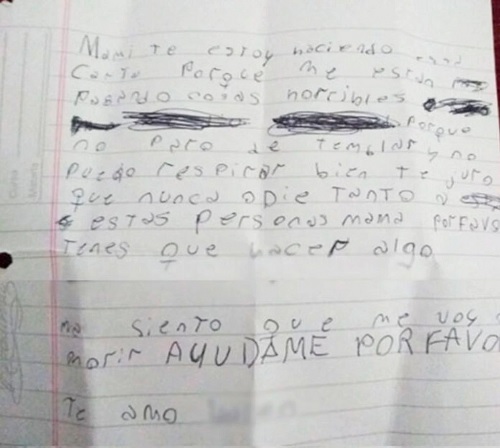 Mami te estoy haciendo esta
Carta Porque me estan
Pasando cosas horribles
Porque
no Paro de temblar y no
Puedo respirar bien te juro
que nunca odie TanTo a
estas Personas mama PorFavo
Tenes que hacer algo
ma siento que me voy a
morir AYUDAME POR FAVO
Te amo